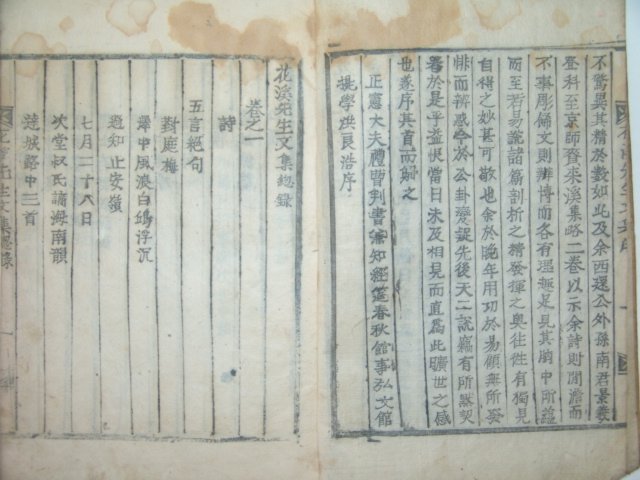 不驚異其精於數如此及余西還公外孫南君景羲
登科至京師賫來溪集略二卷以示余詩則閒澹而
不事彫飾文則辨博而各有理趣足見其胸中所蘊
而至若易說諸篇剖析之精發揮之奧往往有獨見
自得之妙甚可敬也余於晚年用功於易顧無所發
悱而稱惑今於公卦變說先後天二說竊有所默契
者於是乎益恨當日未及相見而直爲此曠世之感
也遂序其首而歸之
正憲大夫禮曹判書兼知經筵春秋館事弘文館
提學洪良浩序
花溪先生文集總錄
卷之一
詩
五言絕句
對庭梅
舉中風浪白鷗浮沉
題知止安嶺
七月二十八日
次堂叔氏謫海南韻
達城路中三首
花溪先生文集總錄